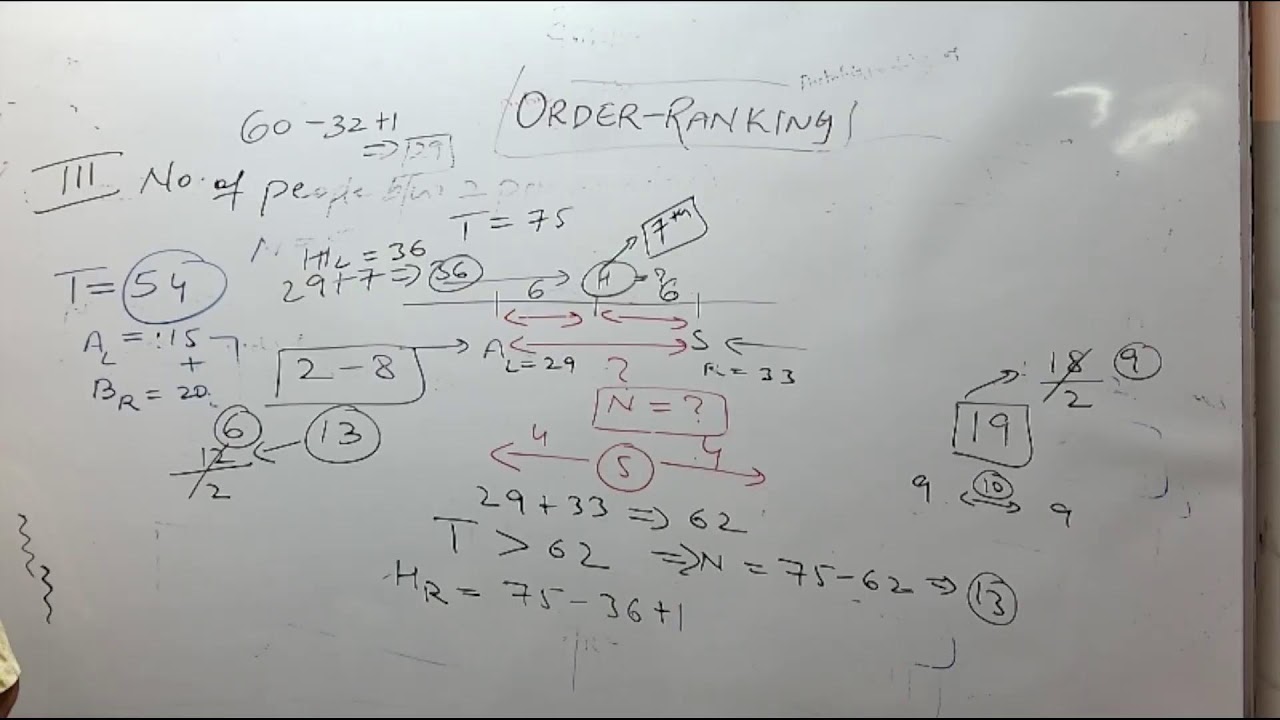 ORDER-RANKING
60 - 32 + 1
⇒ 29
III No. of people
T = 75
7th
H_L = 36
29 + 7 ⇒ 36
6 H = ? 6
T = 54
A_L = 15
+
B_R = 20
2 - 8
A_L = 29
S
R = 33
?
N = ?
6
12/2
13
4 5 4
18/2 9
19
9 10 9
29 + 33 ⇒ 62
T > 62 ⇒ N = 75 - 62 ⇒ 13
H_R = 75 - 36 + 1